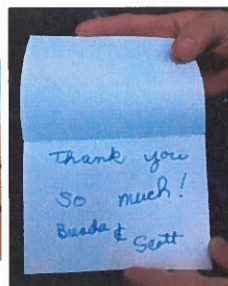 Thank you
so much!
Brenda &
Scott